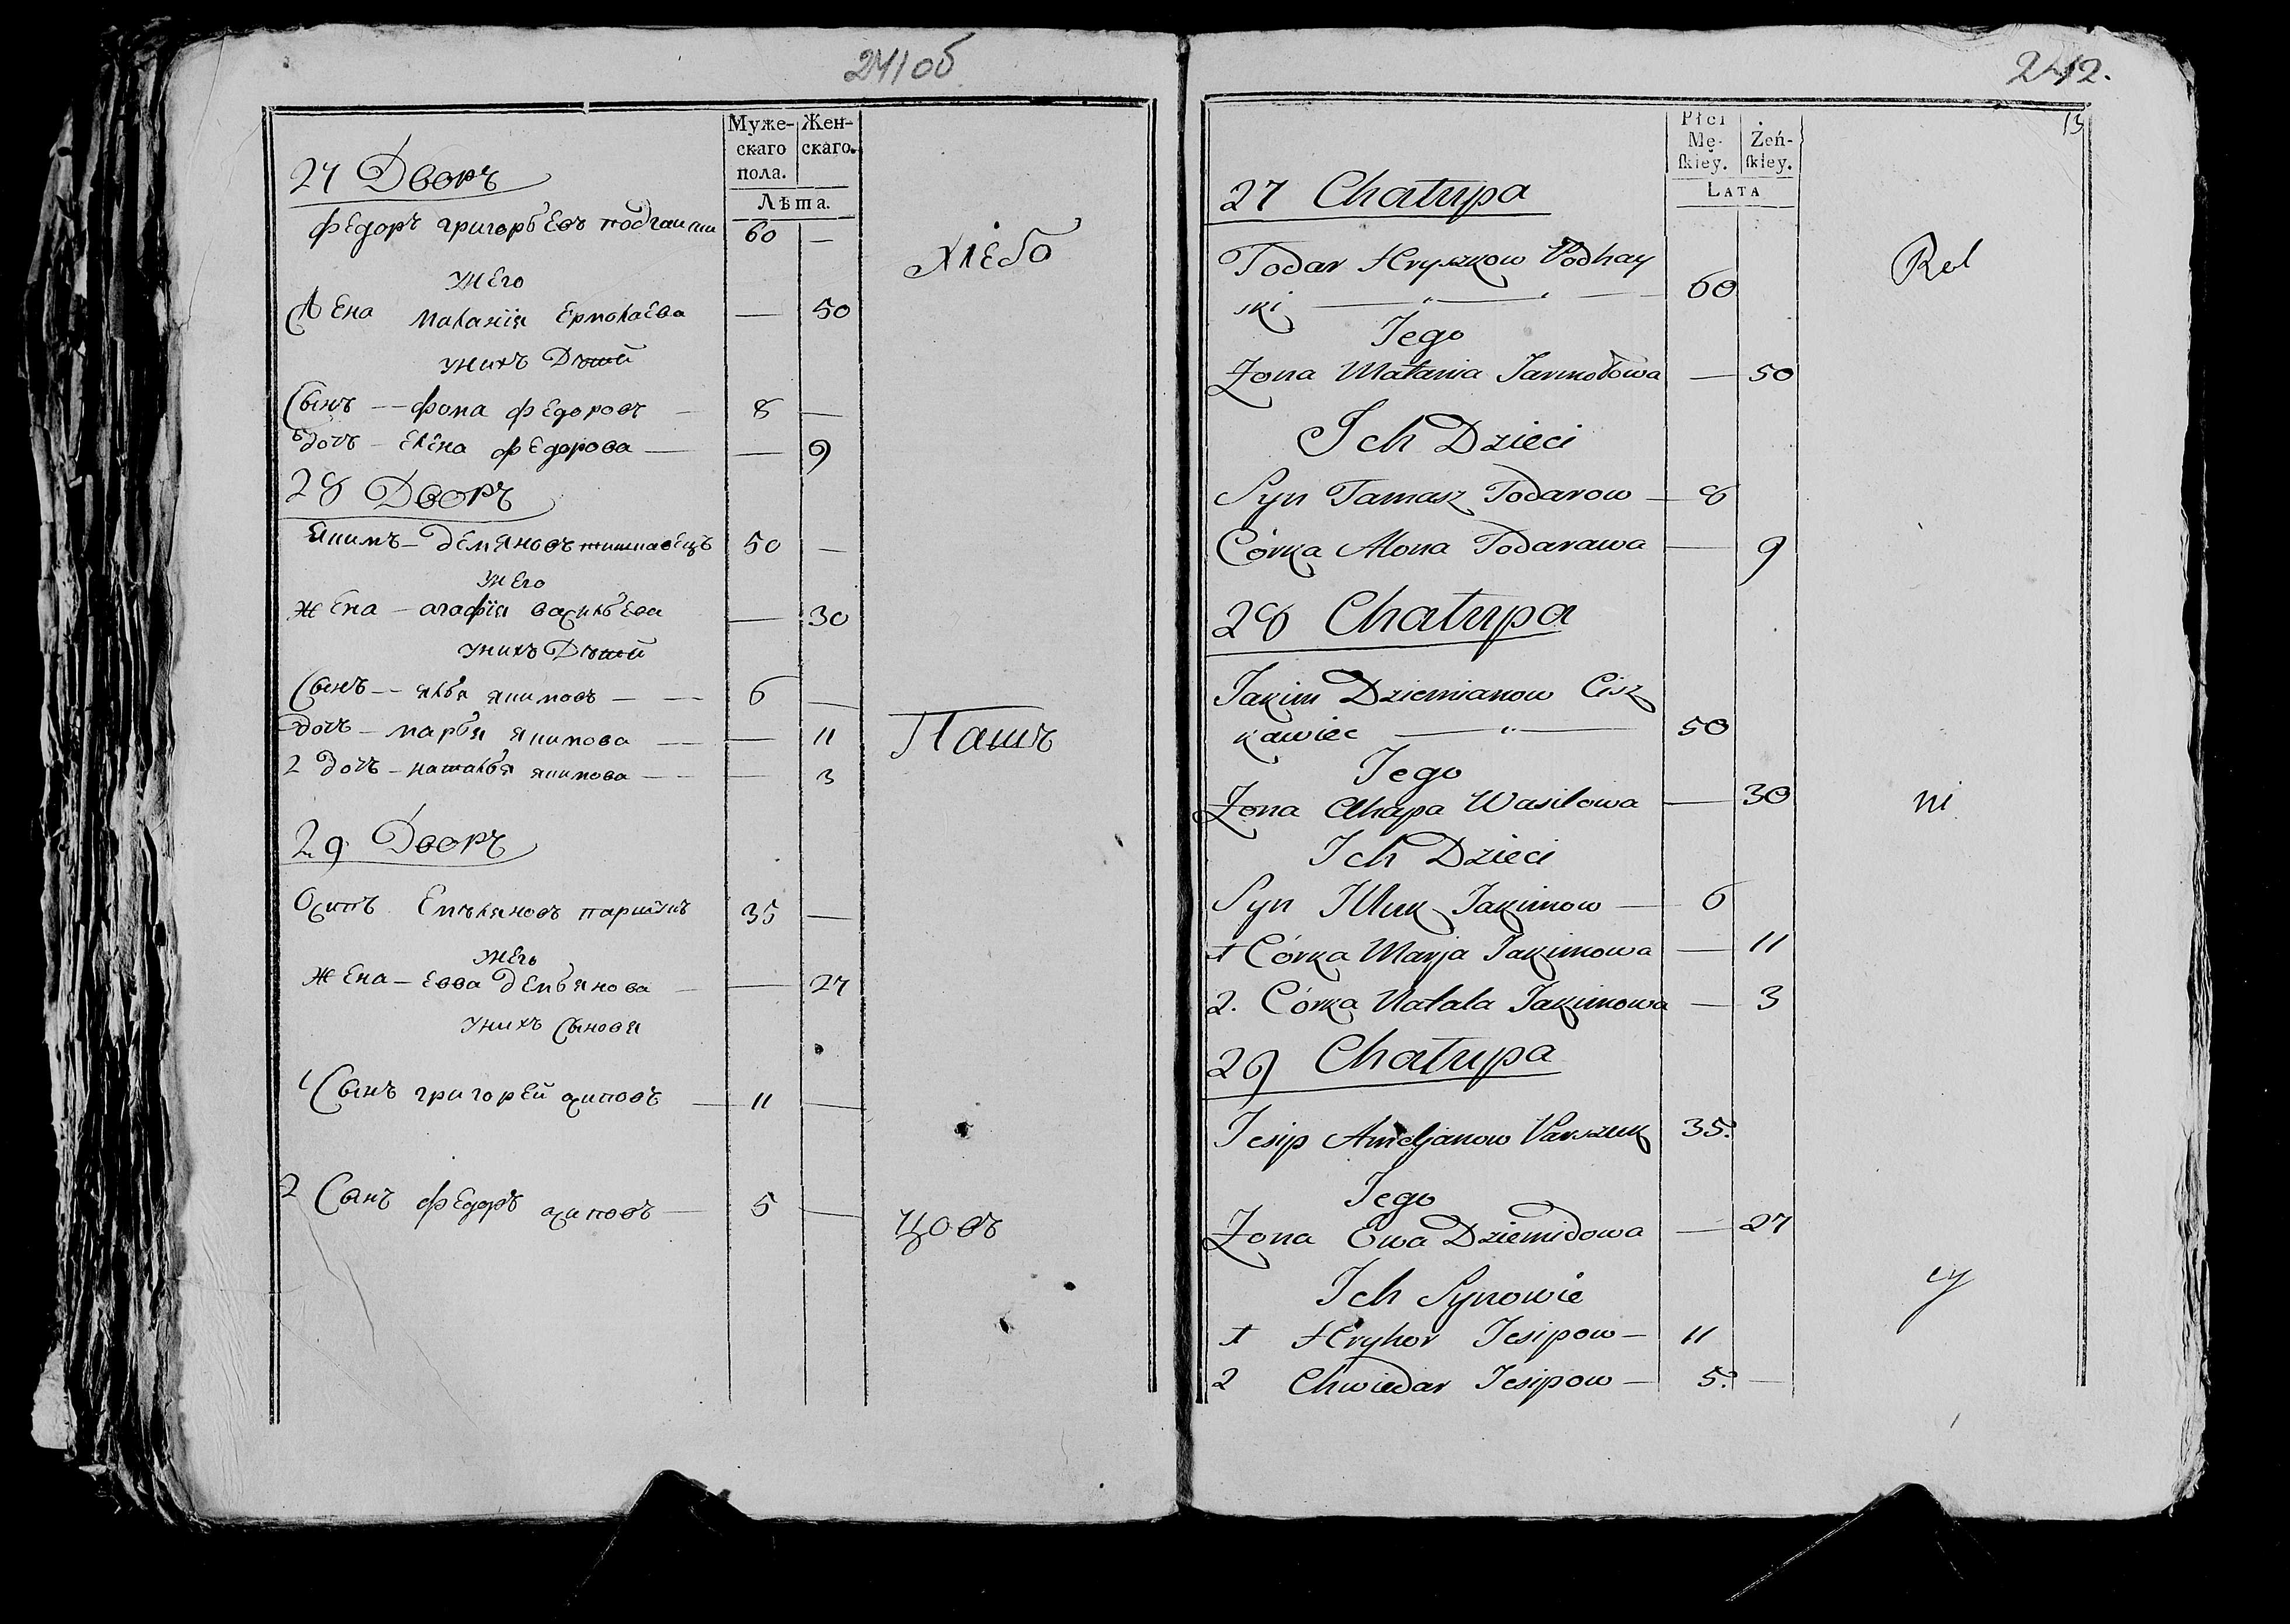 241об
Муже- Жен-
скаго скаго.
пола.
Лѣта.
27 Дворъ
Федоръ григорьевъ подгаиски 60 —
хлебо
у него
жена маланія ермолаева — 50
у нихъ Дѣтей
Сынъ — фома федоровъ — 8 —
дочь — елена федорова — — 9
28 Дворъ
якимъ — демяновъ тишковецъ 50 —
у него
жена — агафія васильева — 30
у нихъ Дѣтей
Сынъ — илья якимовъ — 6 —
дочь — марья якимова — — 11
Пашъ
2 дочь — наталья якимова — — 3
29 Дворъ
Осипъ Емельяновъ паршукъ 35 —
у него
жена — евва демьянова — — 27
у нихъ Сыновя
1 Сынъ григорей осиповъ — 11 —
2 Сынъ федоръ осиповъ — 5 —
цовъ
242.
13
Płci
Mę- Żeń-
ſkiey. ſkiey.
LATA
27 Chałupa
Todar Hryszkow Podhay
ski — 60
Rol
Jego
Żona Małania Jarmołowa — 50
Ich Dzieci
Syn Tamasz Todarow — 8
Córka Alona Todarawa — 9
28 Chałupa
Jakim Dziemianow Cisz
kawiec — 50
Jego
Żona Ahapa Wasilowa — 30
ni
Ich Dzieci
Syn Illuk Jakimow — 6
1 Córka Marja Jakimowa — 11
2. Córka Natala Jakimowa — 3
29 Chałupa
Jesip Ameljanow Parszuk 35.
Jego
Żona Ewa Dziemidowa — 27
cy
Ich Synowie
1 Hryhor Jesipow — 11
2 Chwiedar Jesipow — 5. —